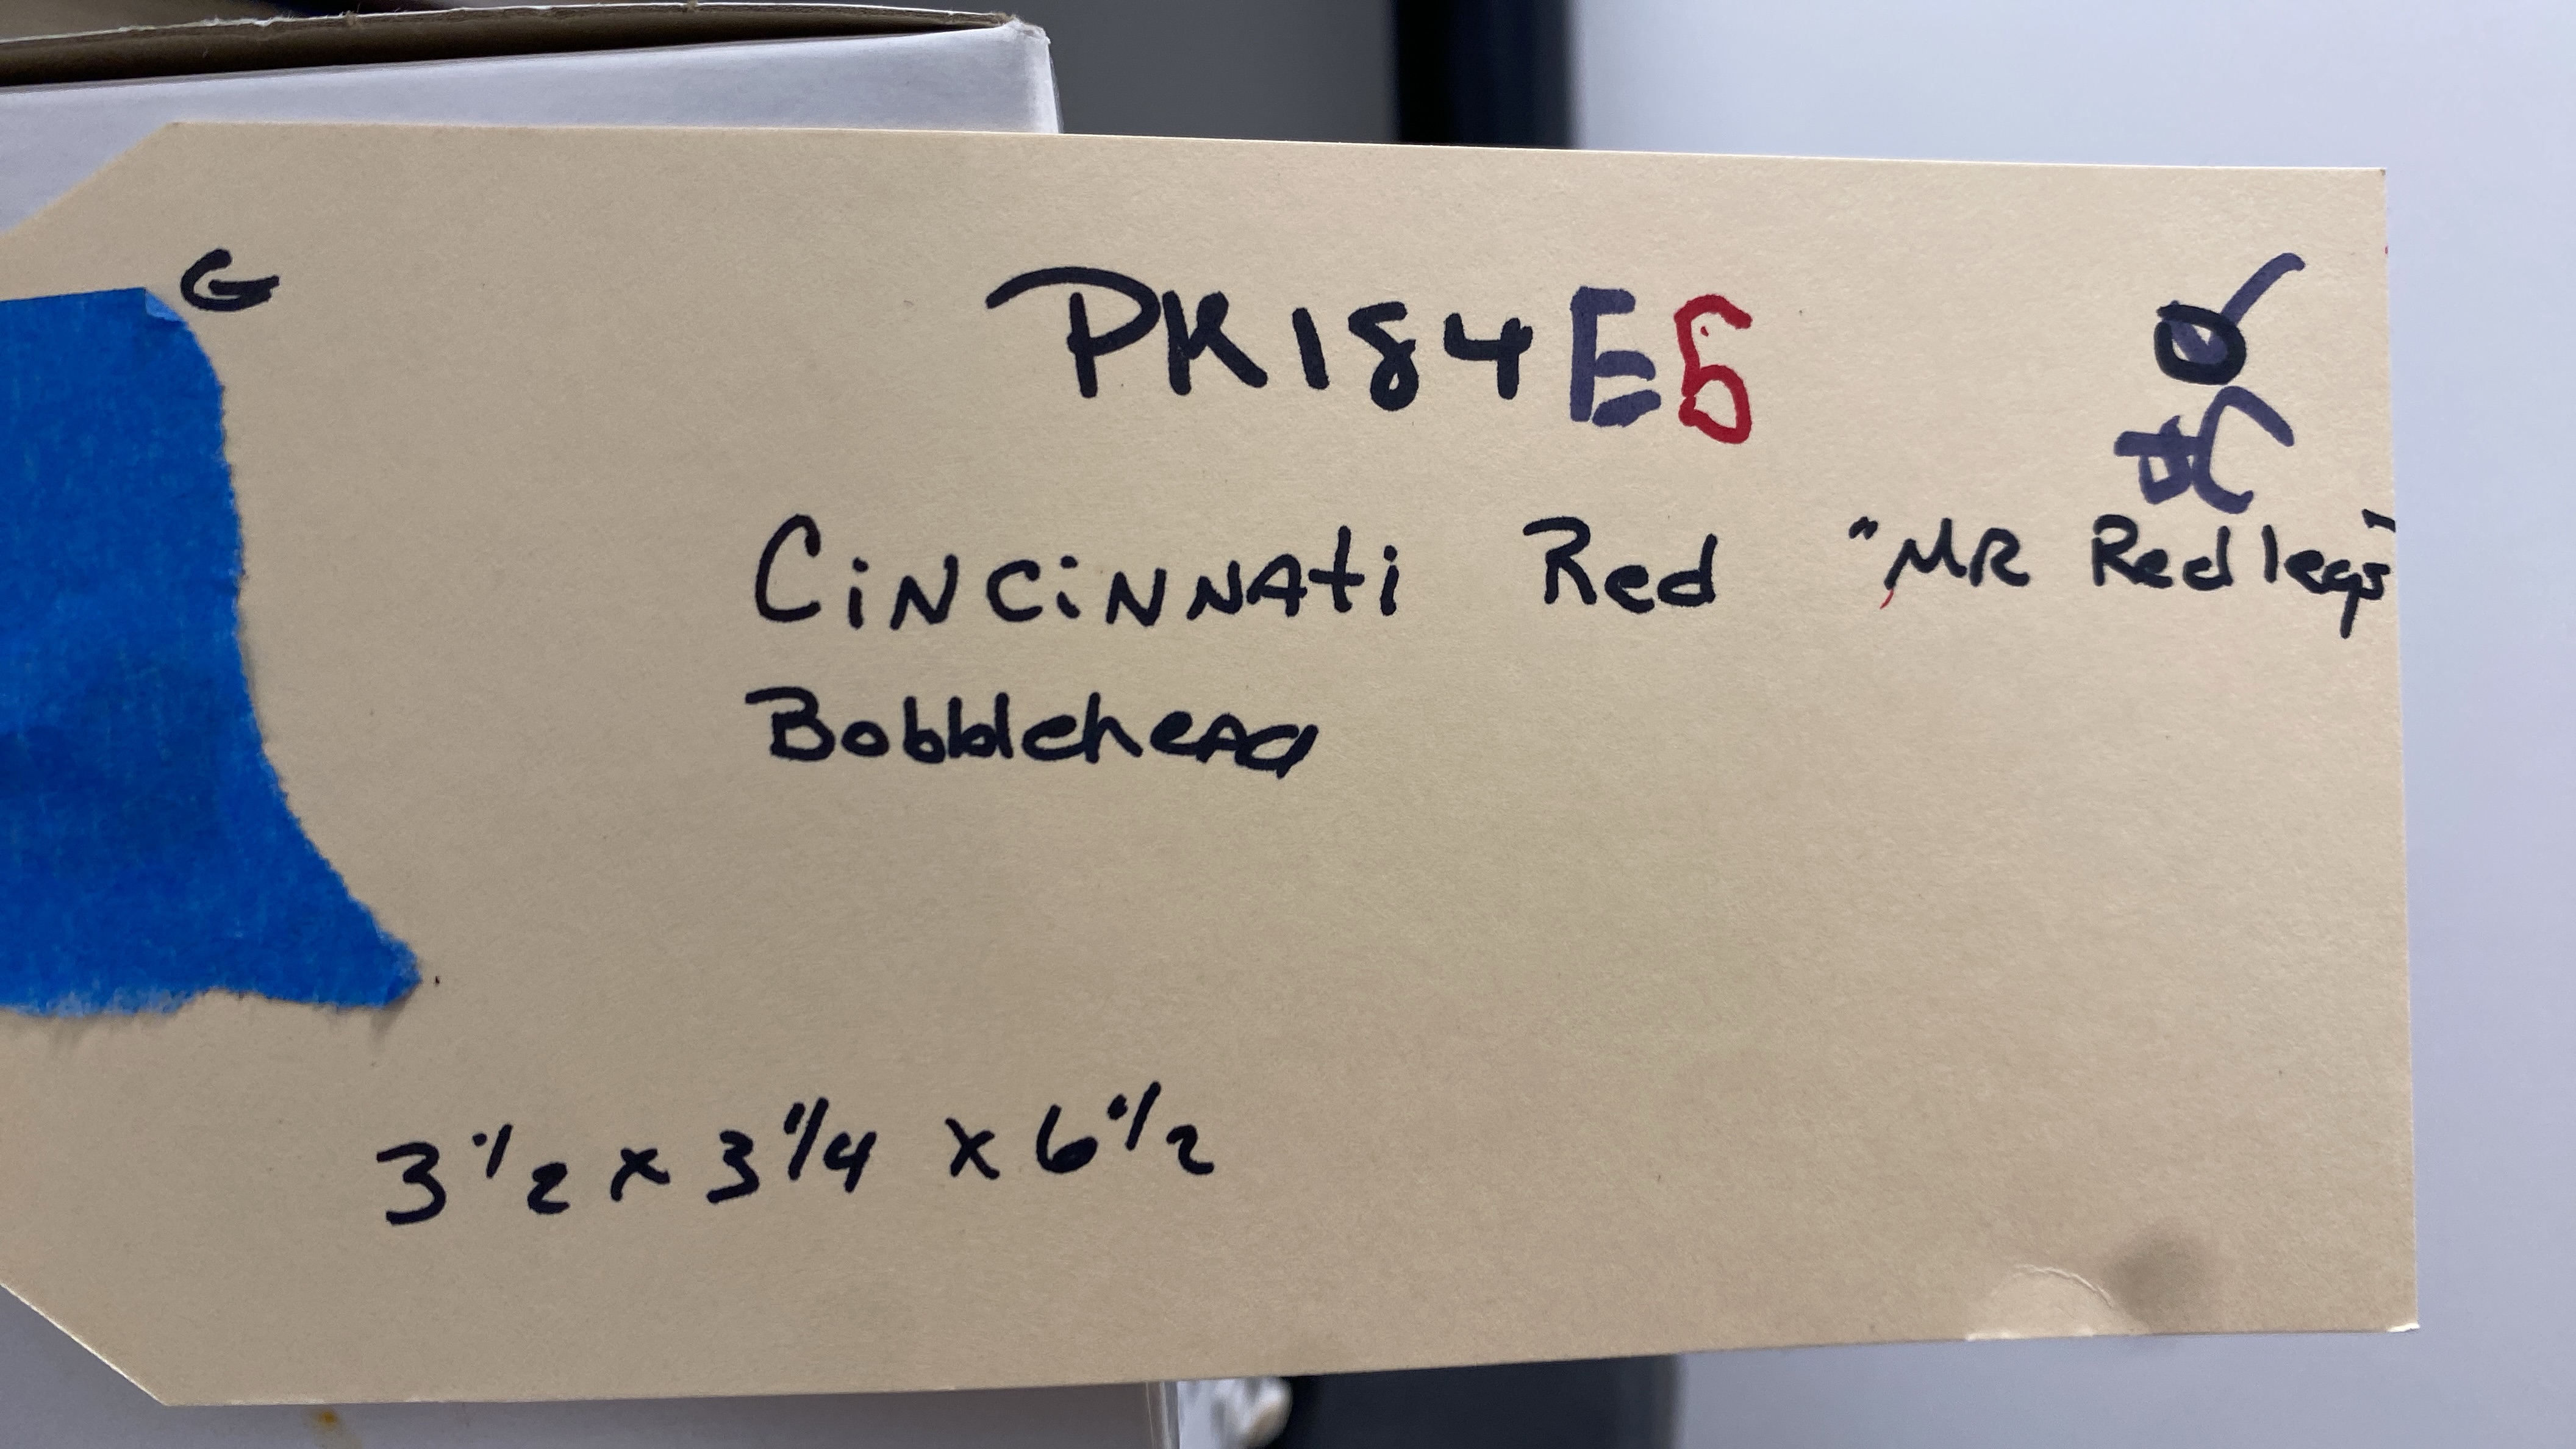 G
PK184E6
Cincinnati Red "MR Redlegs"
Bobblehead
3 1/2 x 3 1/4 x 6 1/2